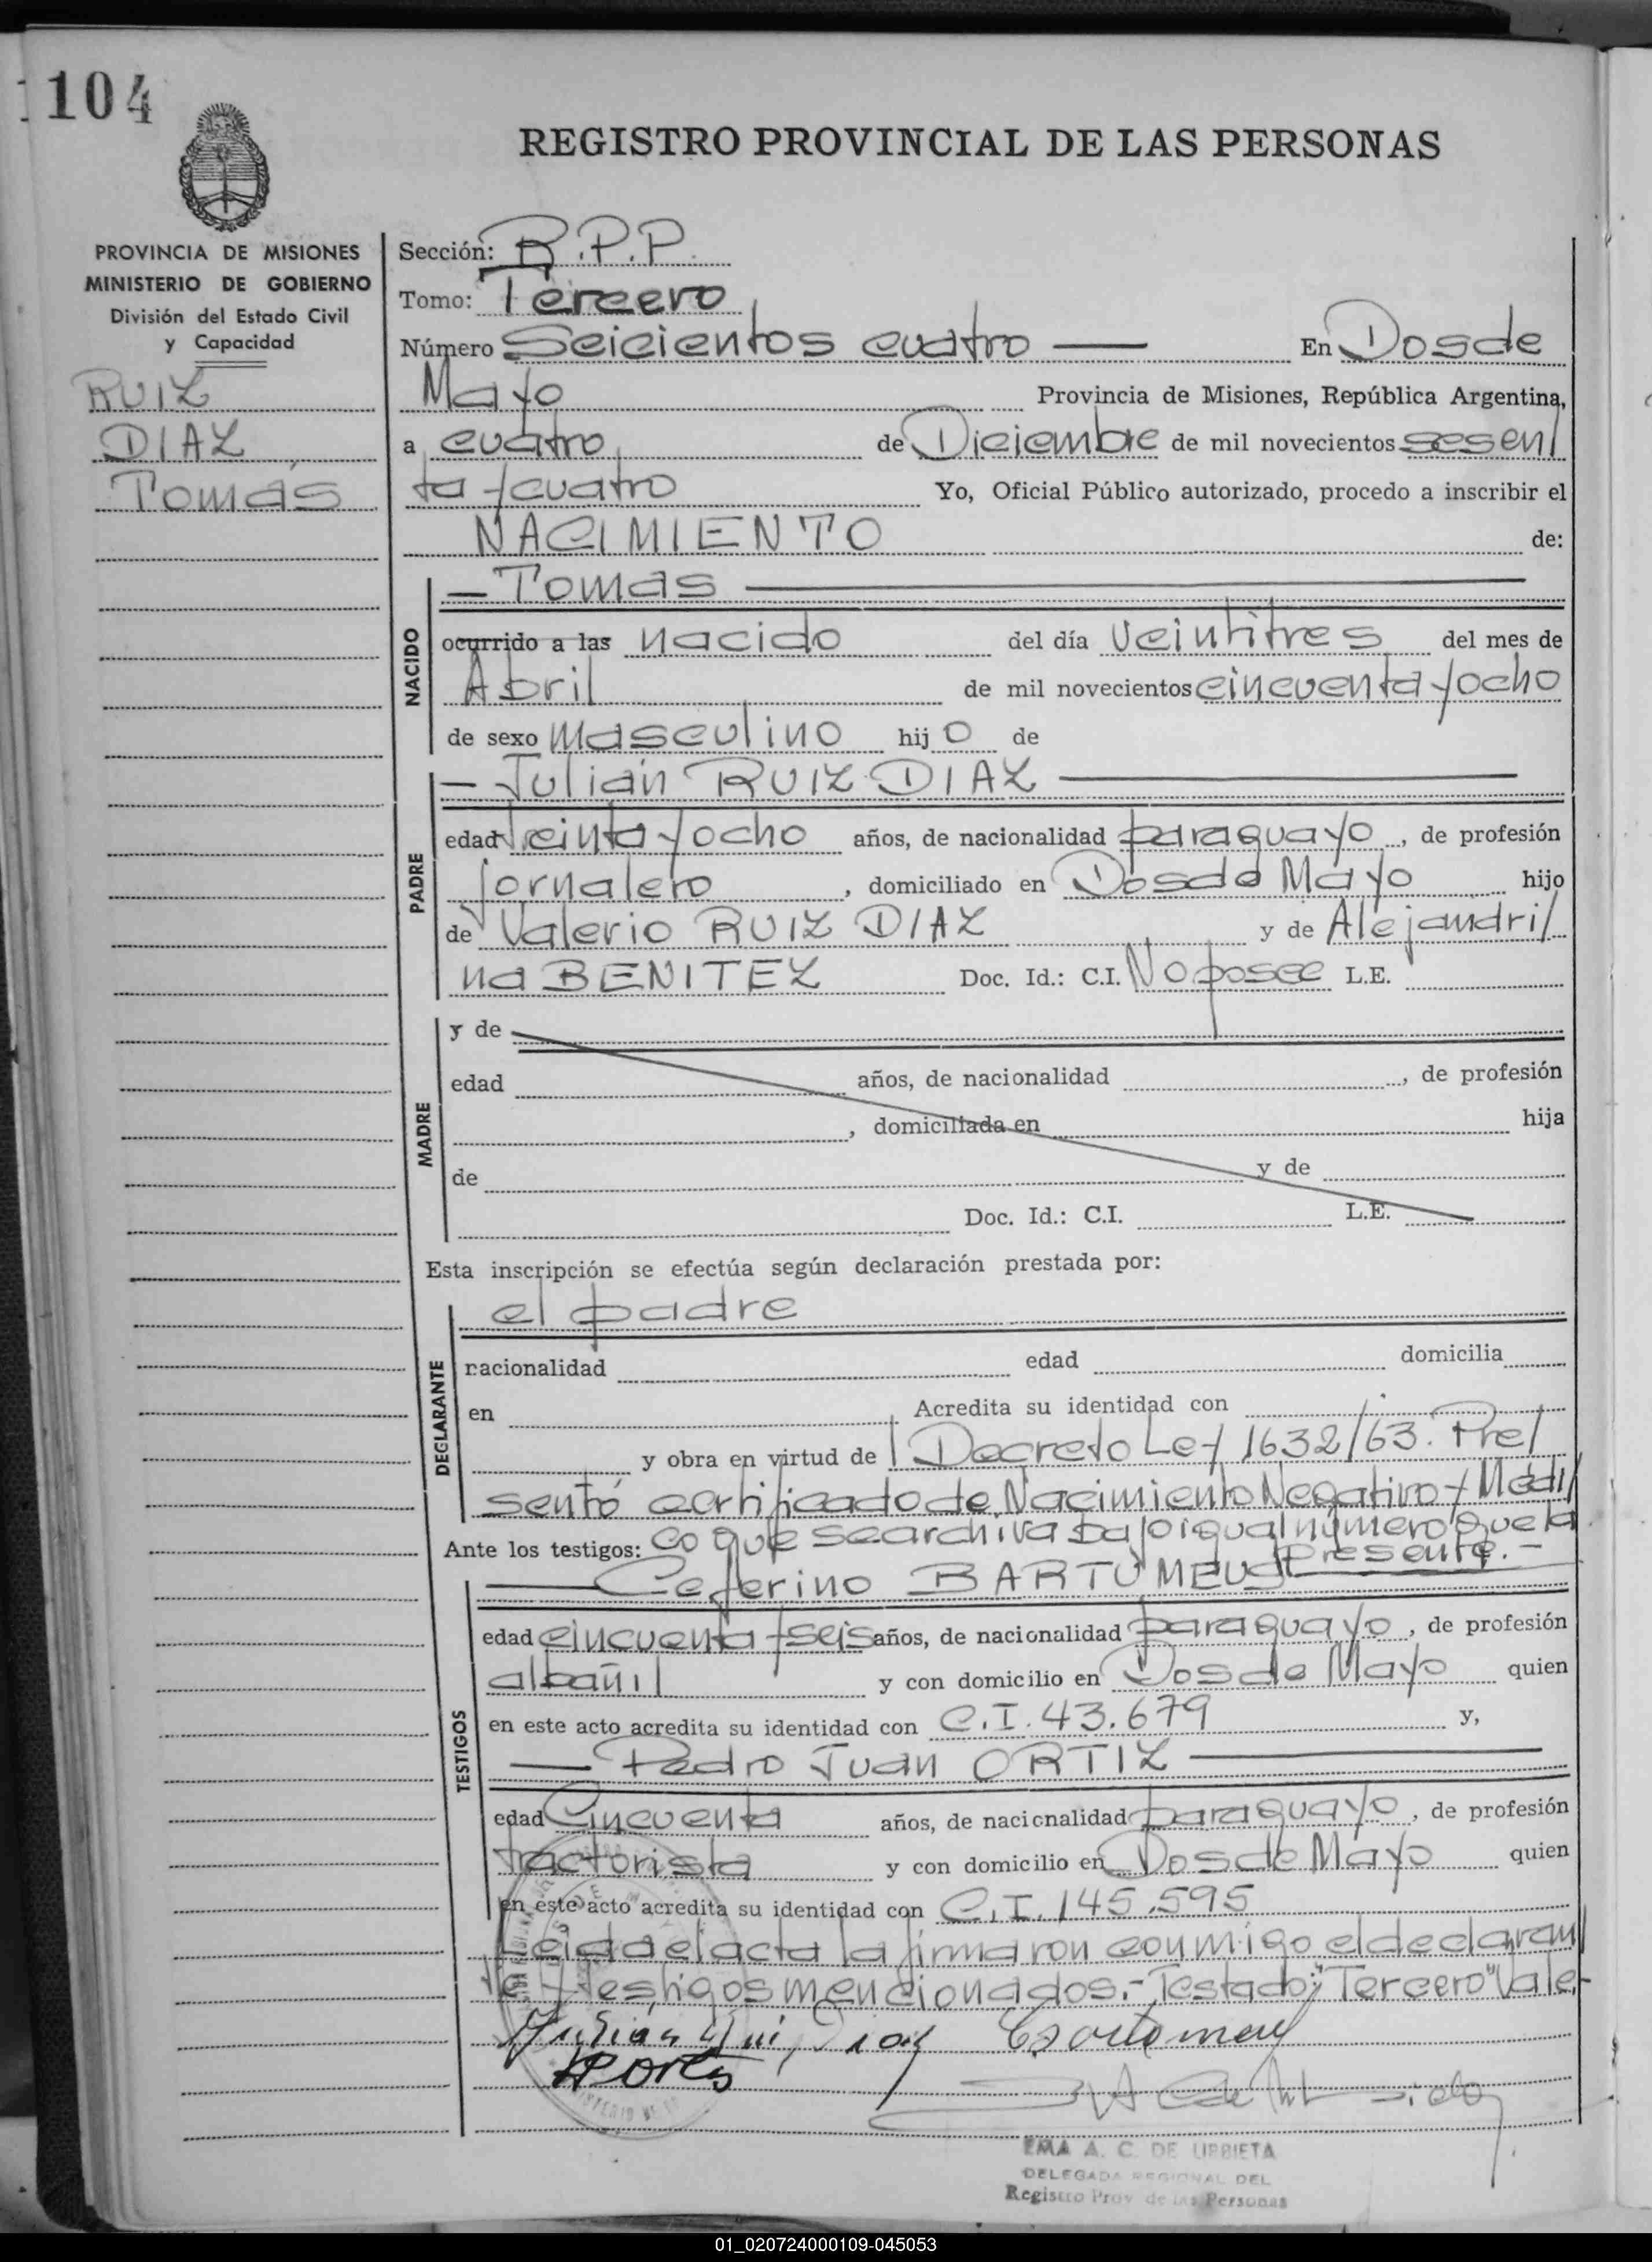 104
REGISTRO PROVINCIAL DE LAS PERSONAS
PROVINCIA DE MISIONES
MINISTERIO DE GOBIERNO
División del Estado Civil
y Capacidad
RUIZ
DIAZ
Tomás
Sección: R.P.P.
Tomo: Tercero
Número Seicientos cuatro — En Dos de
Mayo Provincia de Misiones, República Argentina,
a cuatro de Diciembre de mil novecientos sesen/
ta y cuatro Yo, Oficial Público autorizado, procedo a inscribir el
NACIMIENTO de:
NACIDO
— Tomás —
ocurrido a las nacido del día veintitres del mes de
Abril de mil novecientos cincuenta y ocho
de sexo masculino hijo de
PADRE
— Julián RUIZ DIAZ —
edad treinta y ocho años, de nacionalidad paraguayo, de profesión
jornalero, domiciliado en Dos de Mayo hijo
de Valerio RUIZ DIAZ y de Alejandri/
na BENITEZ Doc. Id.: C.I. No posee L.E.
MADRE
y de
edad años, de nacionalidad , de profesión
, domiciliada en hija
de y de
Doc. Id.: C.I. L.E.
Esta inscripción se efectúa según declaración prestada por:
DECLARANTE
el padre
nacionalidad edad domicilia
en Acredita su identidad con
y obra en virtud de Decreto Ley 1632/63. Pre/
sentó certificado de Nacimiento Negativo y Medi/
co que se archiva bajo igual número que la
Ante los testigos: presente.-
TESTIGOS
— Ceferino BARTUMEUS
edad cincuenta y seis años, de nacionalidad paraguayo, de profesión
albañil y con domicilio en Dos de Mayo quien
en este acto acredita su identidad con C.I. 43.679 y,
— Pedro Juan ORTIZ —
edad Cincuenta años, de nacionalidad paraguayo, de profesión
tractorista y con domicilio en Dos de Mayo quien
en este acto acredita su identidad con C.I. 145.595
Leida el acta la firmaron conmigo el declaran/
te y testigos mencionados.- Testado: "Tercero" Vale.-
EMA A. C. DE URBIETA
DELEGADA REGIONAL DEL
Registro Prov de las Personas
01_020724000109-045053